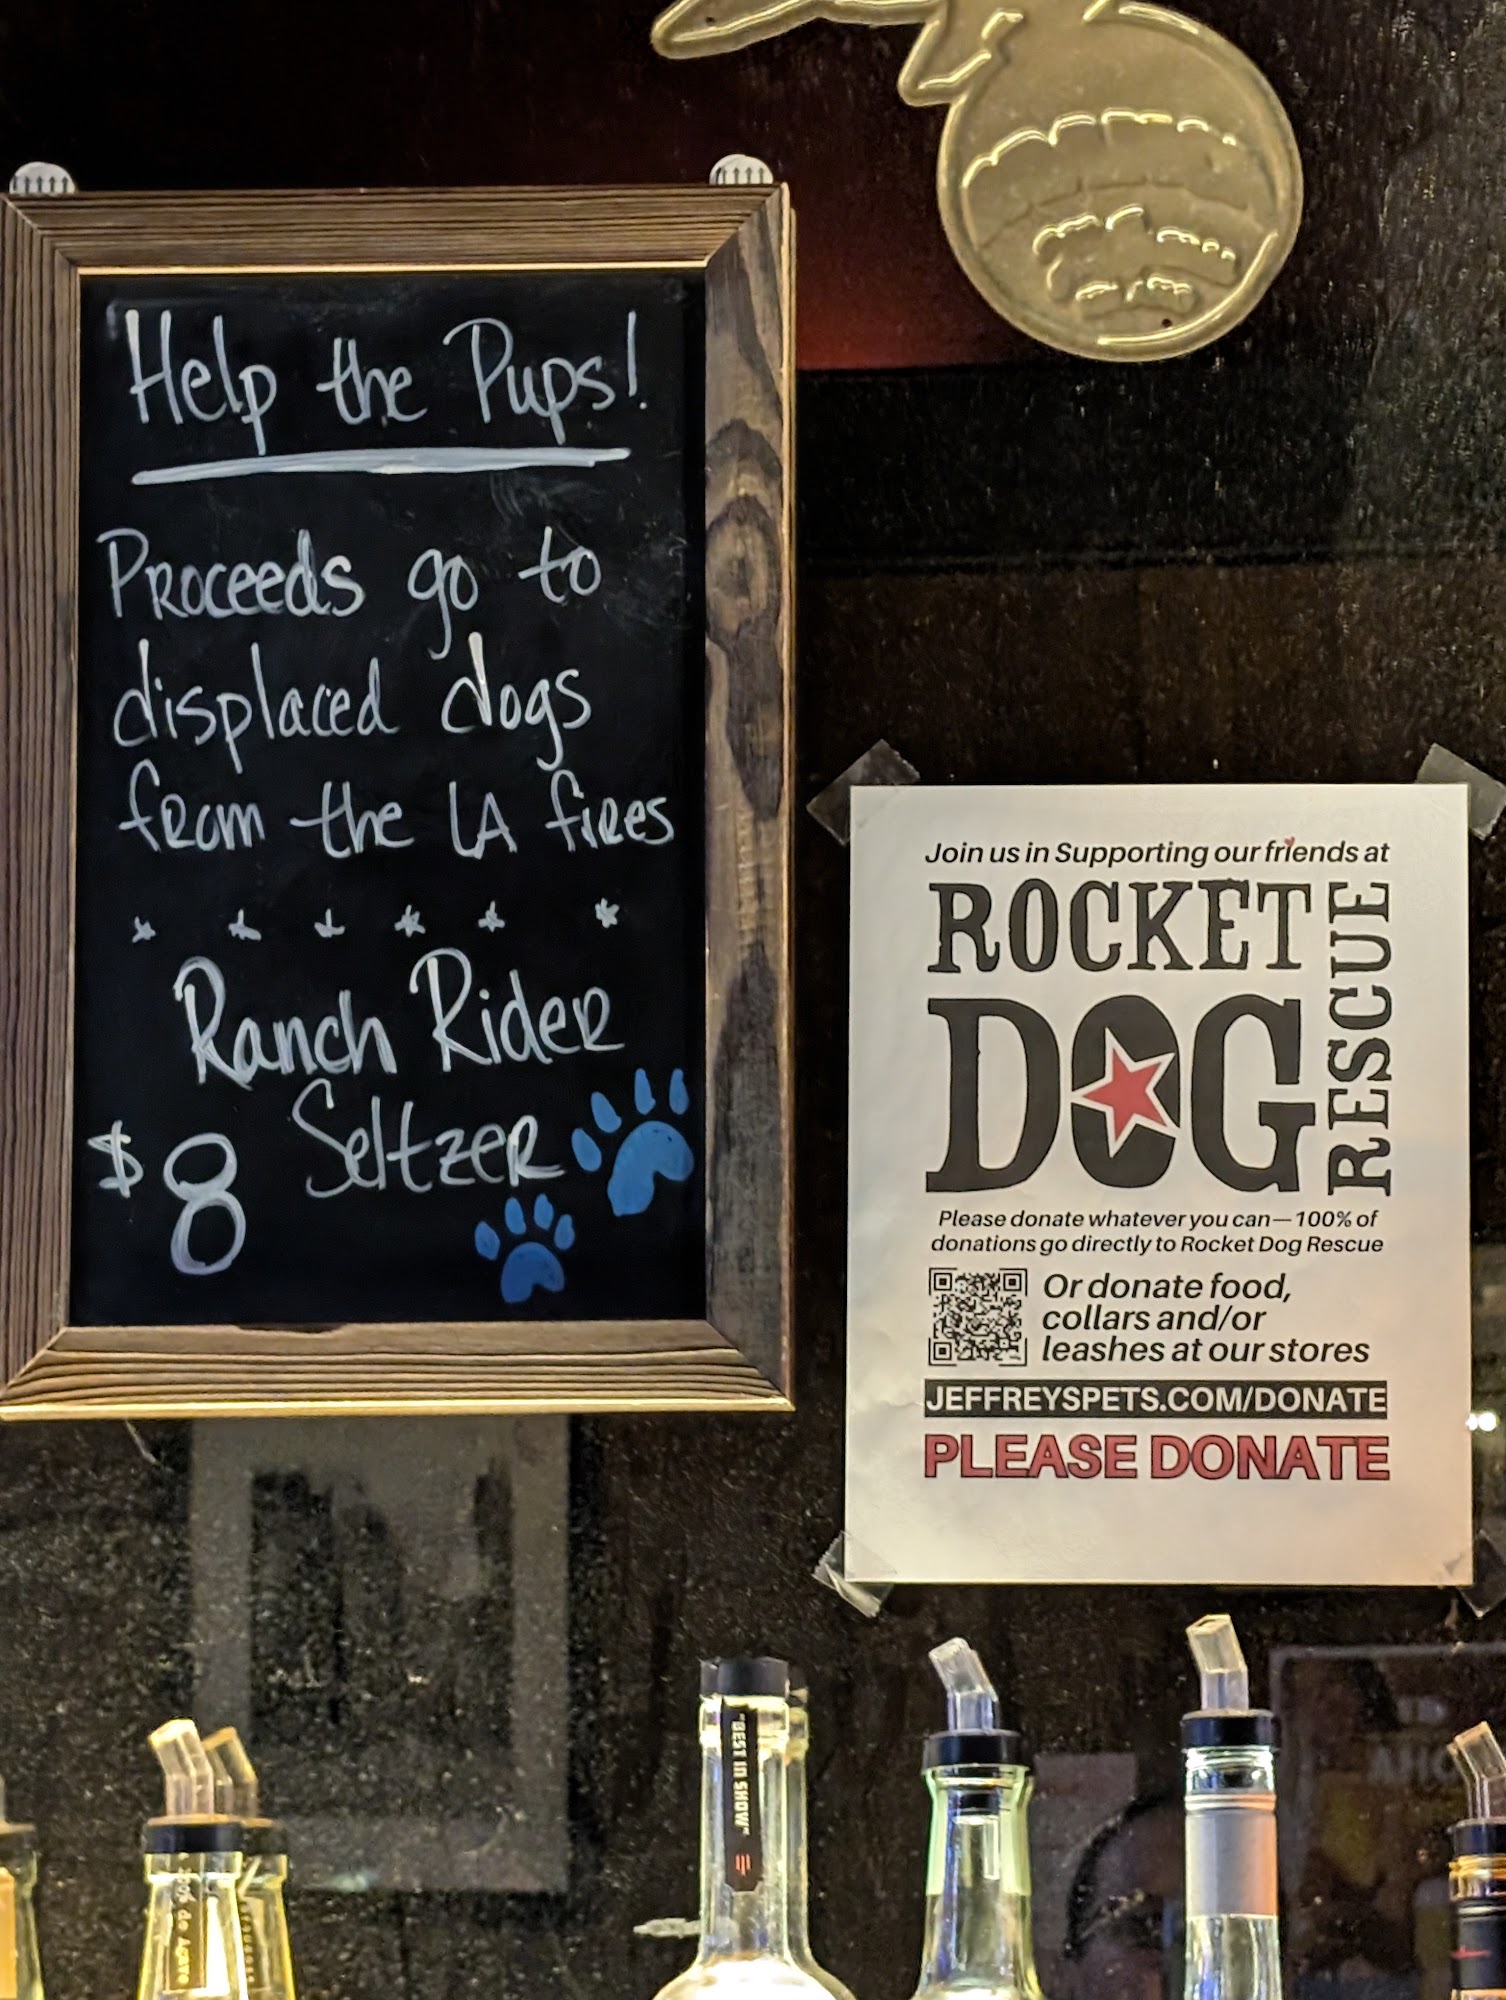 Help the Pups!
Proceeds go to
displaced dogs
from the LA fires
Ranch Rider
Seltzer
$8
Join us in Supporting our friends at
ROCKET
DOG
RESCUE
Please donate whatever you can—100% of
donations go directly to Rocket Dog Rescue
Or donate food,
collars and/or
leashes at our stores
JEFFREYSPETS.COM/DONATE
PLEASE DONATE
"BEST IN SHOW"
de Agave